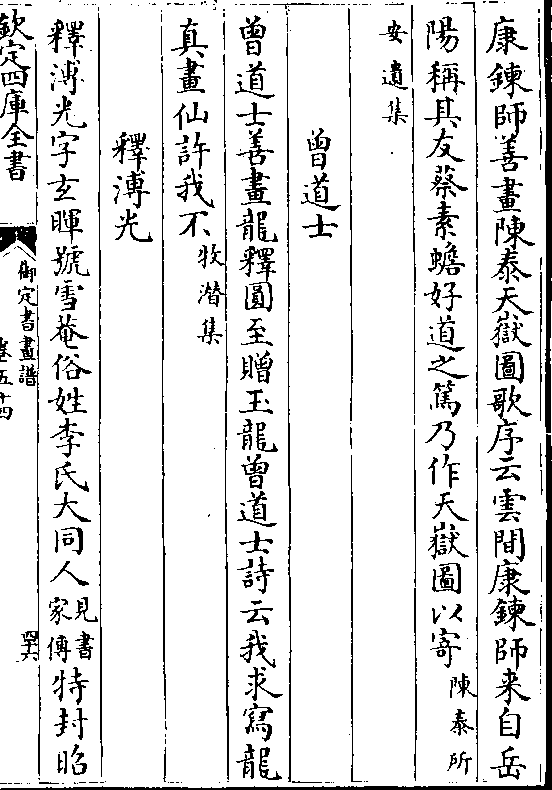 康鍊師善畫陳泰天嶽圖歌序云雲間康鍊師来自岳
陽稱其友蔡素蟾好道之篤乃作天嶽圖以寄陳泰所
安遺集
曾道士
曾道士善畫龍釋圓至贈玉龍曾道士詩云我求寫龍
真畫仙許我不牧潛集
釋溥光
釋溥光字玄暉號雪菴俗姓李氏大同人見書家傳特封昭
欽定四庫全書
御定書畫譜
卷五十四